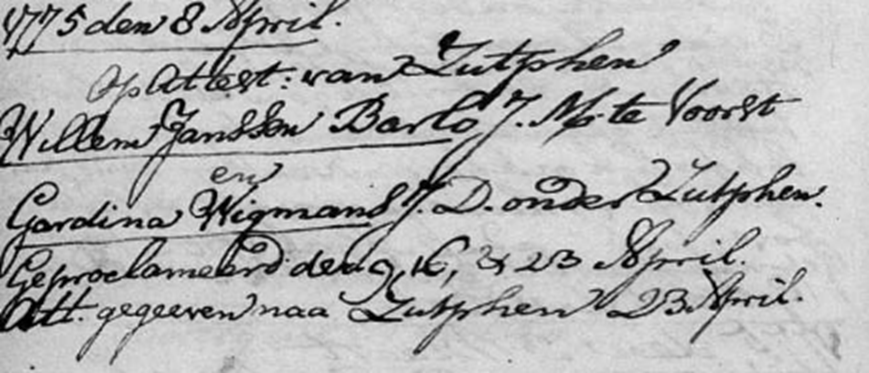 1775 den 8 April.
Op Attest: van Zutphen
Willem Janssen Barlo J. M. te Voorst
en
Gardina Wigmans J. D. onder Zutphen.
Geproclameerd den 9, 16, & 23 April.
Att. gegeeven naa Zutphen 23 April.